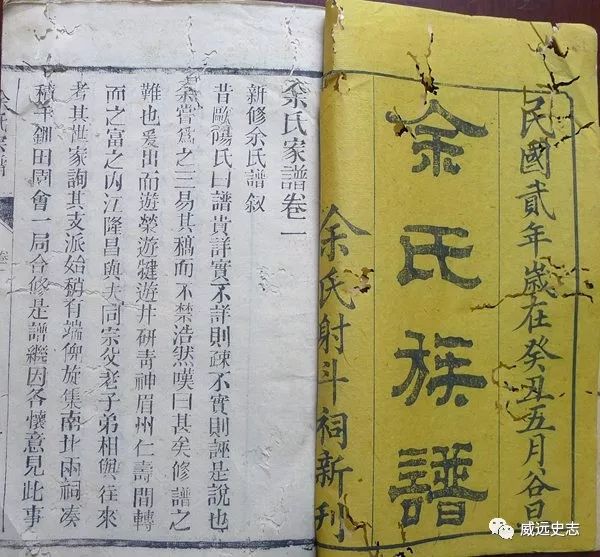 民國貳年歲在癸丑五月谷旦
余氏族譜
余氏射斗祠新刊
余氏家譜卷一
新修余氏譜叙
昔歐陽氏曰譜貴詳實不詳則疎不實則誣是說也
余嘗爲之三易其稿而不禁浩然嘆曰甚矣修譜之
難也爰出而遊榮遊犍遊井研青神眉州仁壽間轉
而之富之內江隆昌與夫同宗父老子弟相與往來
者其世家詢其支派始稍有端倪旋集南北兩祠凑
田園會一局合修是譜繼因各懷意見此事
余氏宗譜
威远史志